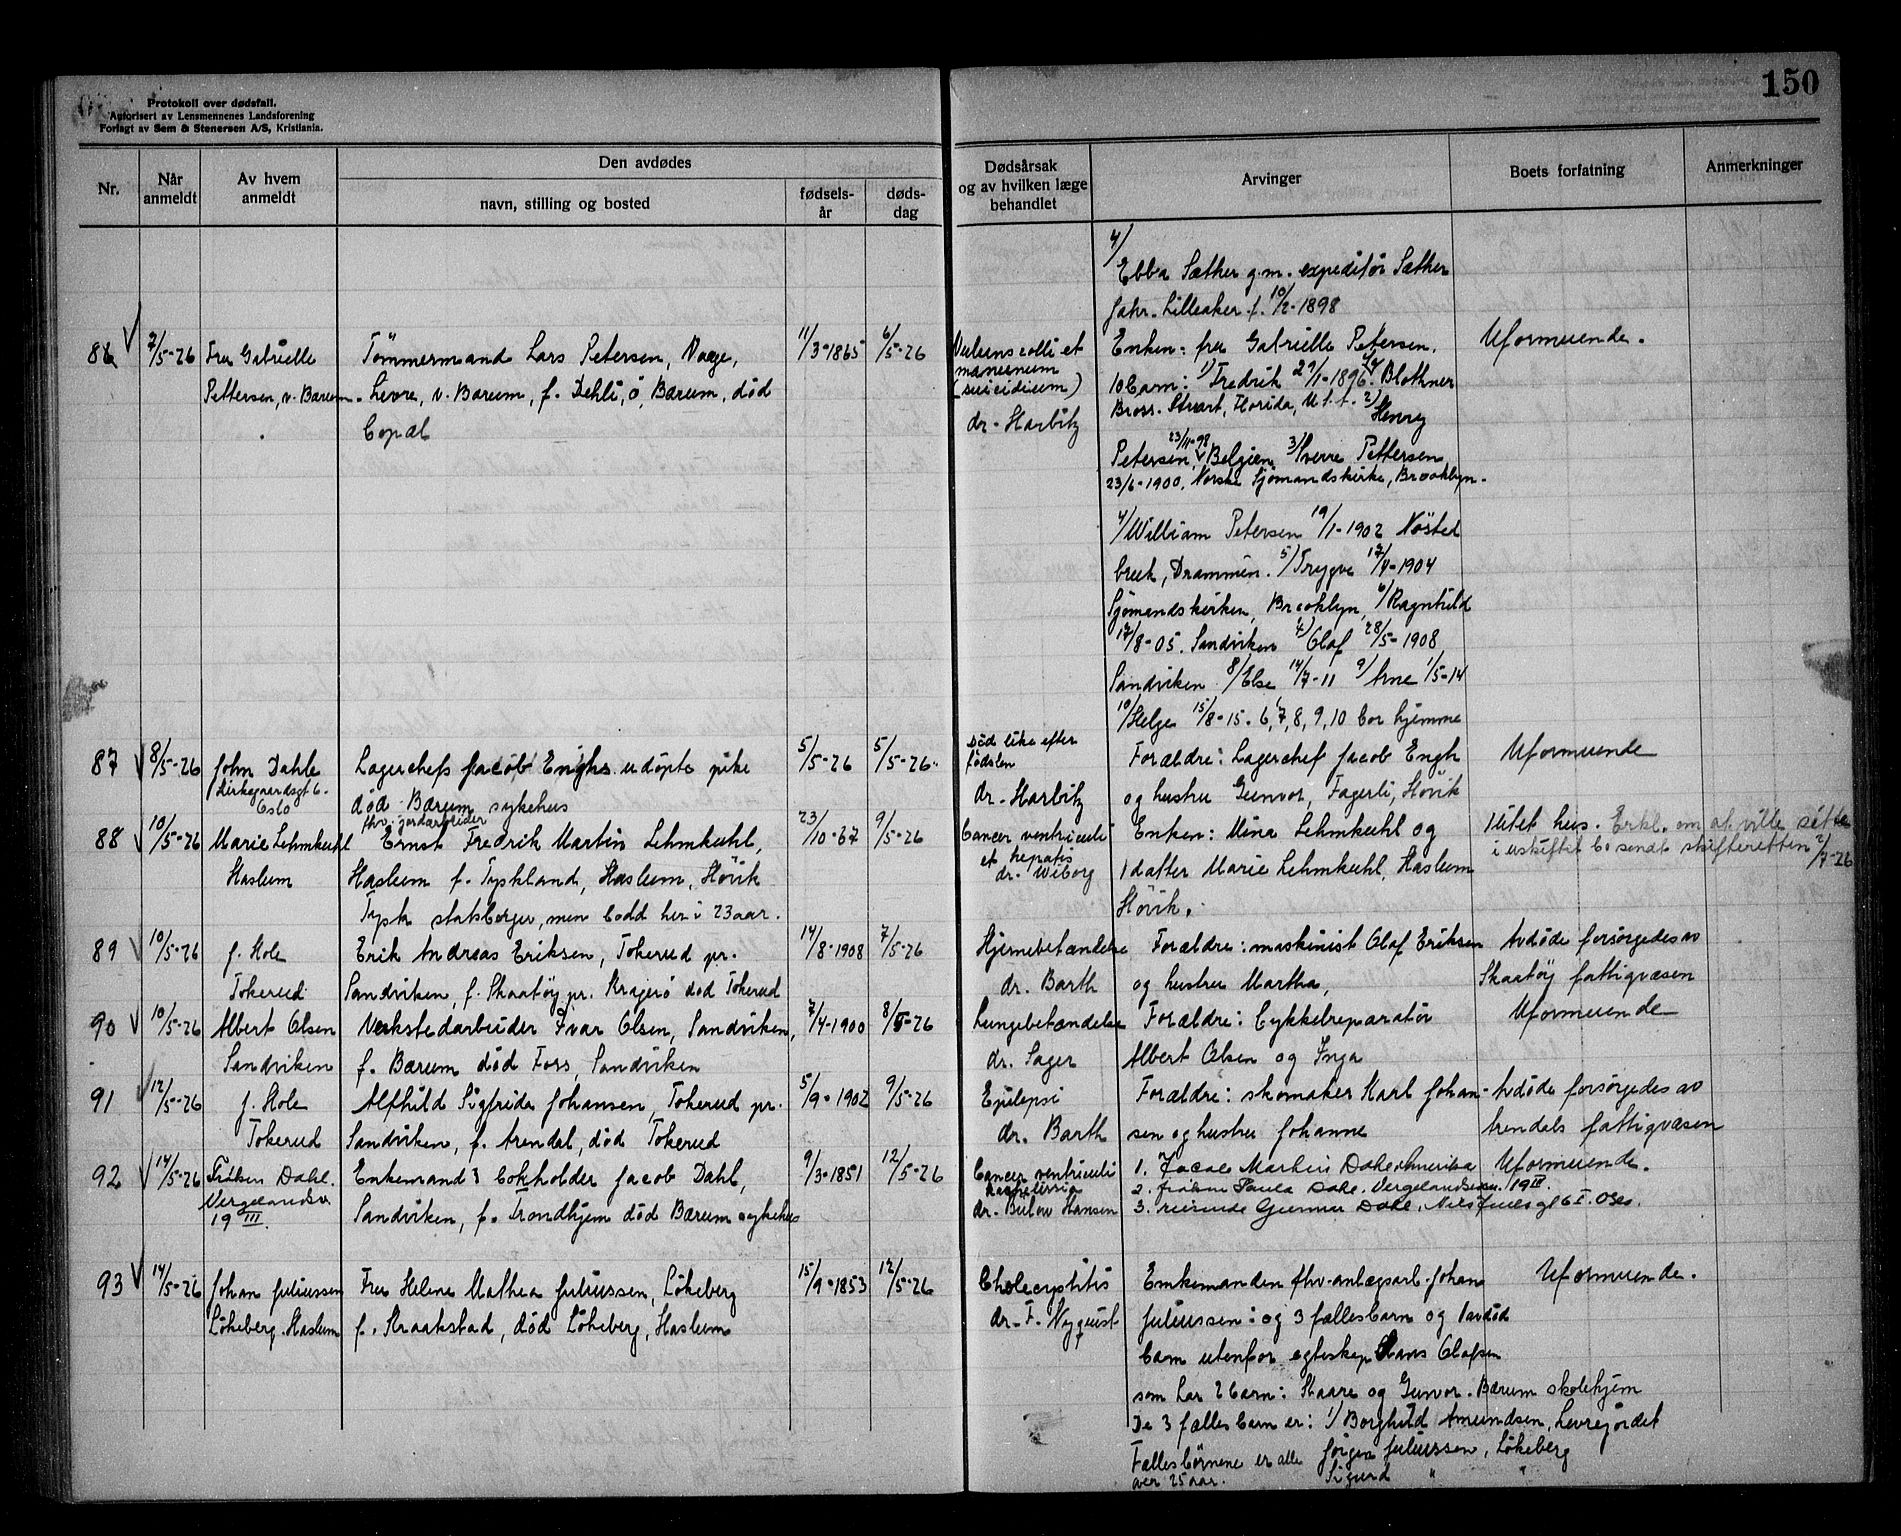 150
Protokoll over dødsfall.
Autorisert av Lensmennenes Landsforening
Forlagt av Sem & Stenersen A/S, Kristiania.
Nr.
Når anmeldt
Av hvem anmeldt
Den avdødes
navn, stilling og bosted
fødsels-år
døds-dag
Dødsårsak og av hvilken læge behandlet
Arvinger
Boets forfatning
Anmerkninger
4/
Ebba Sæther g.m. expeditør Sæther
Jahr. Lilleaker f. 10/2-1898
86 7/5-26 Fru Gabrielle
Pettersen, v. Bærum.
Tømmermand Lars Petersen,
Levre, v. Bærum, f. Dehli, ø. Bærum, død
Copal
11/3-1865 6/5-26
Vulnus colli et
(suicidium)
dr. Harbitz
Enken: fru Gabrielle Petersen.
10 barn: 1/ Fredrik 29/1-1896. Blothner
Bross. Stuart, Florida, U.S.A. 2/ Henry
Petersen, 23/11-98 Belgien 3/ Sverre Pettersen
23/6-1900. Norske Sjømandskirke, Brooklyn.
4/ William Petersen 19/1-1902 Nøsted
bruk, Drammen. 5/ Trygve 17/4-1904
Sjømandskirken, Brooklyn, 6/ Ragnhild
17/8-05. Sandviken 7/ Olaf 28/5-1908
Sandviken 8/ Else 14/7-11 9/ Arne 1/5-14
10/ Helge 15/8-15. 6, 7, 8, 9, 10 bor hjemme
Uformuende.
87 8/5-26 John Dahle
Kirkegaardsgt 6.
Oslo
Lagerchefs Jacob Enghs udøpte pike
død Bærum sykehus
5/5-26 5/5-26
Død like efter
fødslen
dr. Harbitz
Forældre: Lagerchef Jacob Engh
og hustru Gunvor, Fagerli, Høvik
Uformuende
88 10/5-26 Marie Lehmkuhl
Haslum
fhv. jordarbeider
Ernst Fredrik Martin Lehmkuhl,
Haslum f. Tyskland, Haslum, Høvik
Tysk statsborger, men bodd her i 23 aar.
23/10-67 9/5-26
Cancer ventriculi
et hepatis
dr. Wiborg
Enken: Mina Lehmkuhl og
1 datter Marie Lehmkuhl, Haslum
Høvik.
1 litet hus. Erkl. om at ville sitte
i uskiftet bo sendt skifteretten 2/7-26
89 10/5-26 J. Hole
Tokerud
Erik Andreas Eriksen, Tokerud pr.
Sandviken, f. Skaatøy pr. Kragerø død Tokerud
14/8-1908 7/5-26
Hjernebetændelse
dr. Barth
Forældre: maskinist Olaf Eriksen
og hustru Martha,
Avdøde forsørgedes av
Skaatøy fattigvæsen
90 10/5-26 Albert Olsen
Sandviken
Verkstedarbeider Ivar Olsen, Sandviken,
f. Bærum død Foss, Sandviken
7/4-1900 8/5-26
Lungebetændelse
dr. Sager
Forældre: Cykkelreparatør
Albert Olsen og Inga
Uformuende
91 12/5-26 J. Hole
Tokerud
Alfhild Sigfride Johansen, Tokerud pr.
Sandviken, f. Arendal, død Tokerud
5/9-1902 9/5-26
Epilepsi
dr. Barth
Forældre: skomaker Karl Johan-
sen og hustru Johanne
Avdøde forsørgedes av
Arendals fattigvæsen
92 14/5-26 Frøken Dahl.
Vergelandsv.
19 III.
Enkemand bokholder Jacob Dahl,
Sandviken, f. Trondhjem død Bærum sykehus
9/3-1851 12/5-26
Cancer ventriculi
dr. Bülow Hansen
1. Jacob Martin Dahl Amerika
2. frøken Paula Dahl. Vergelandsveien 19 III.
3. Gunnar Dahl, Nils Juels gt 6 I. Oslo.
Uformuende.
93 14/5-26 Johan Juliussen
Løkeberg. Haslum
Fru Helene Mathea Juliussen, Løkeberg
f. Kraakstad, død Løkeberg, Haslum
15/9-1853 12/5-26
Cholecystitis
dr. F. Nyquist
Enkemanden fhv. anlægsarb. Johan
Juliussen: og 3 fælles barn og 1 avdød
barn utenfor egteskap Hans Olafsen
som har 2 barn: Kaare og Gunvor. Bærum skolehjem
De 3 fælles barn er: 1/ Borghild Amundsen, Levrejordet
Fællesbørnene er alle Jørgen Juliussen, Løkeberg
over 25 aar. Sigurd " "
Uformuende.